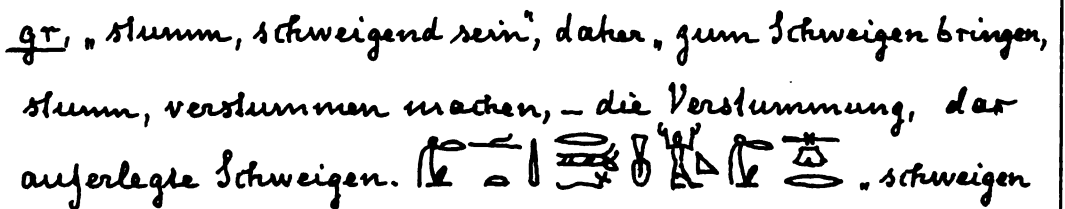 gr, „stumm, schweigend sein“, daher „zum Schweigen bringen,
stumm, verstummen machen, – die Verstummung, das
auferlegte Schweigen. „schweigen